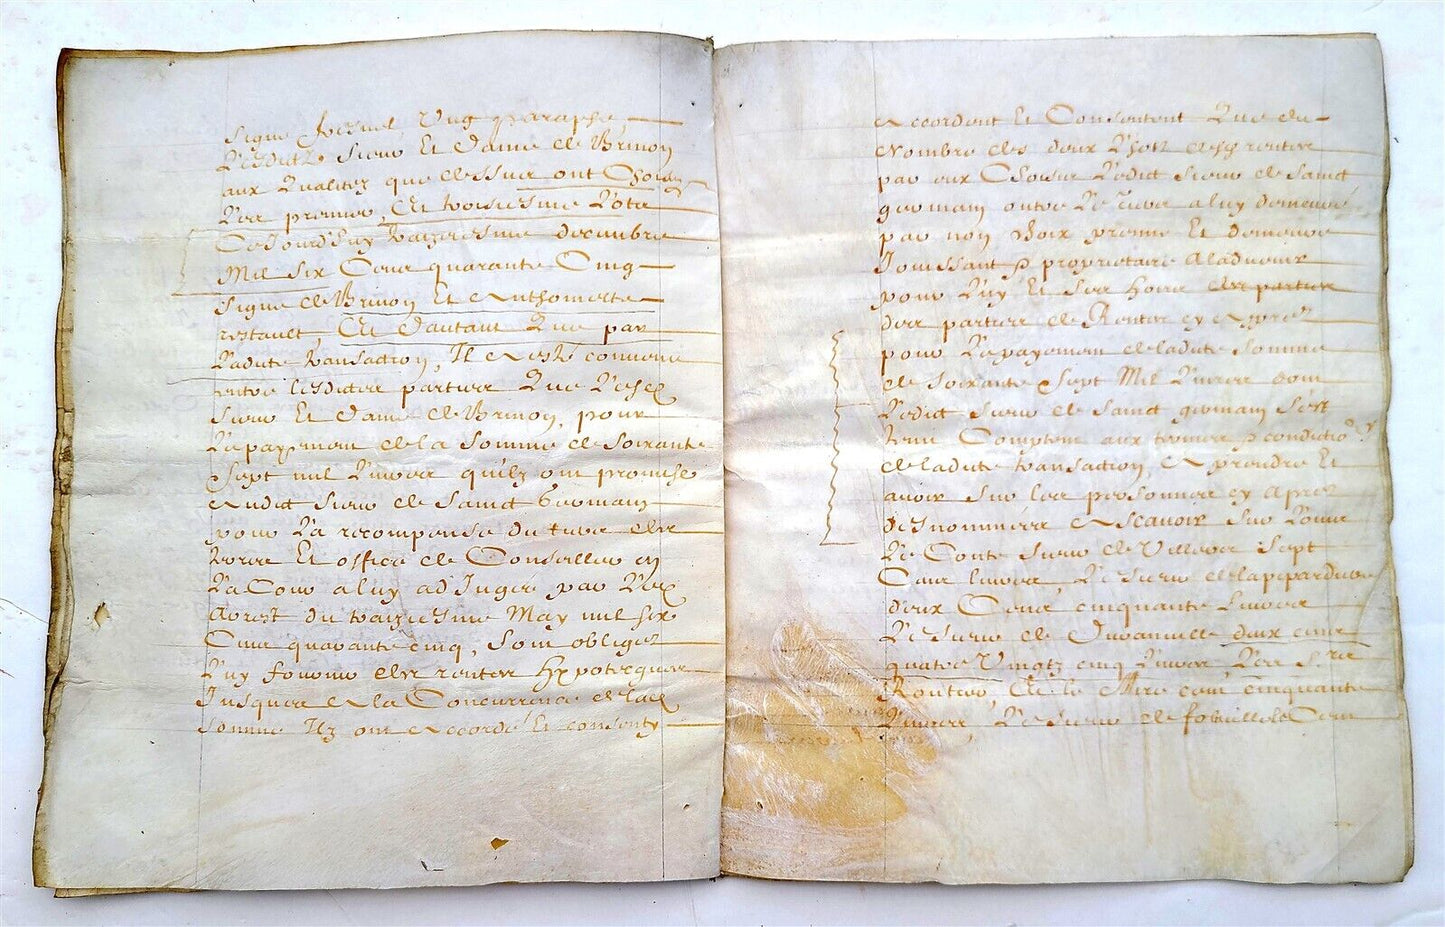 signé Ung paraphe
Lesdictz sieur Et dame de Brinon
aux Qualitez que dessus ont Choisy
Les premier, Et troisiesme Lotz
Cejourd'huy treiziesme decembre
Mil six Cens quarante Cinq
Signé de Brinon Et
restault, Et d'autant Que par
Ladite transaction, Il a esté convenu
entre lesdites parties Que Lesd
Sieur Et dame de Brinon, pour
Le payement de la somme de soixante
Sept mil Livres qu'ilz ont promise
Audict sieur de Sainct Germain
pour La recompense du tiltre des
terre Et office de Conseiller en
La Cour a luy adJugés par Led
Arrest du treiziesme May mil six
Cens quarante cinq, Sont obligez
Luy fournir des rentes Hypotecquer
Jusques A la Concurrence de lad
somme Ilz ont Accordé Et consenty
Accordent Et Consentent Que du
Nombre des deux Lotz desd rentes
par eux Choisis Ledict Sieur de Sainct
germain outre Le tiers a luy demeuré
par non Choix prenne Et demeure
Jouissant & propriettaire A ladvenir
pour Luy Et Ses hoirs des parties
des parties de Rentes cy Aprez
pour Le payement de ladite Somme
de soixante Sept Mil Livres dont
Ledict Sieur de Sainct germain S'est
tenu Comptent aux termes & conditions
de ladite transaction, A prendre Et
avoir Sur les personnes cy Aprez
Desnommées A Scavoir Sur
Le Conte sieur de Sept
Cens livres Le Sieur de
deux Cens cinquante Livres
Le Sieur de deux cens
quatre Vingtz cinq Livres Les
Rentier, Et le Mire cent cinquante
Livres, Le Sieur de Cent